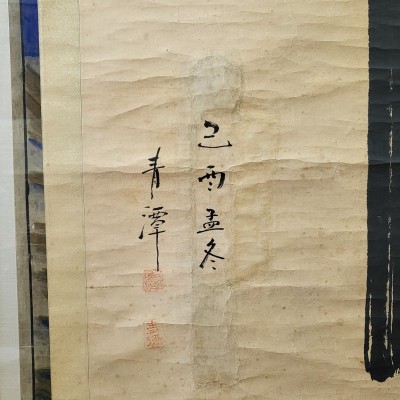 己酉孟冬
青潭